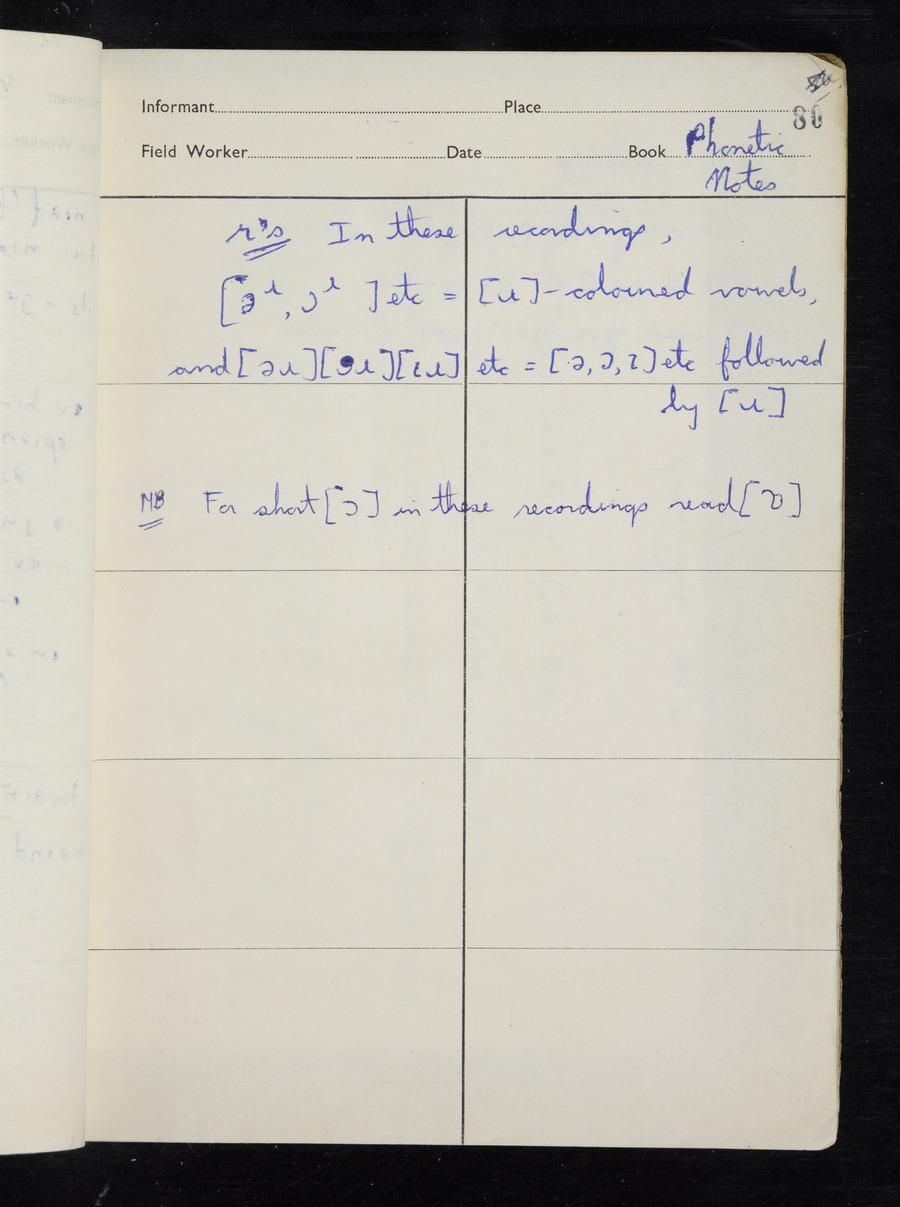 80
Informant Place
Field Worker Date Book Phonetic
Notes
r's In these recordings,
[əɹ, ɔɹ ] etc = [ɹ]-coloured vowels,
and [əɹ][ɔɹ][ɩɹ] etc = [ə, ɔ, ɩ] etc followed
by [ɹ]
NB For short [ɔ] in these recordings read [ɒ]